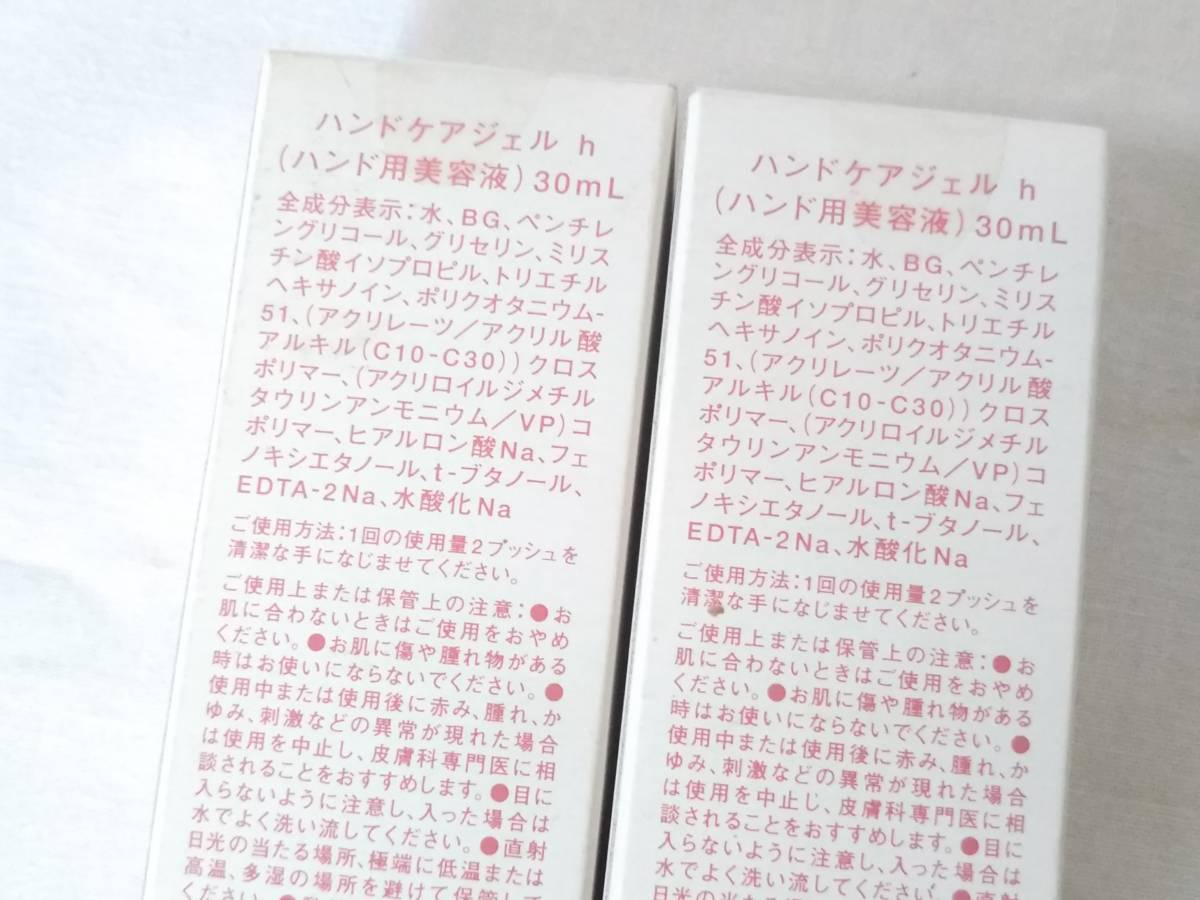 ハンドケアジェル h
(ハンド用美容液)30mL
全成分表示:水、BG、ペンチレ
ングリコール、グリセリン、ミリス
チン酸イソプロピル、トリエチル
ヘキサノイン、ポリクオタニウム-
51、(アクリレーツ／アクリル酸
アルキル(C10-C30))クロス
ポリマー、(アクリロイルジメチル
タウリンアンモニウム／VP)コ
ポリマー、ヒアルロン酸Na、フェ
ノキシエタノール、t-ブタノール、
EDTA-2Na、水酸化Na
ご使用方法:1回の使用量2プッシュを
清潔な手になじませてください。
ご使用上または保管上の注意:●お
肌に合わないときはご使用をおやめ
ください。●お肌に傷や腫れ物がある
時はお使いにならないでください。●
使用中または使用後に赤み、腫れ、か
ゆみ、刺激などの異常が現れた場合
は使用を中止し、皮膚科専門医に相
談されることをおすすめします。●目に
入らないように注意し、入った場合は
水でよく洗い流してください。●直射
日光の当たる場所、極端に低温または
高温、多湿の場所を避けて保管して
ください。●
ハンドケアジェル h
(ハンド用美容液)30mL
全成分表示:水、BG、ペンチレ
ングリコール、グリセリン、ミリス
チン酸イソプロピル、トリエチル
ヘキサノイン、ポリクオタニウム-
51、(アクリレーツ／アクリル酸
アルキル(C10-C30))クロス
ポリマー、(アクリロイルジメチル
タウリンアンモニウム／VP)コ
ポリマー、ヒアルロン酸Na、フェ
ノキシエタノール、t-ブタノール、
EDTA-2Na、水酸化Na
ご使用方法:1回の使用量2プッシュを
清潔な手になじませてください。
ご使用上または保管上の注意:●お
肌に合わないときはご使用をおやめ
ください。●お肌に傷や腫れ物がある
時はお使いにならないでください。●
使用中または使用後に赤み、腫れ、か
ゆみ、刺激などの異常が現れた場合
は使用を中止し、皮膚科専門医に相
談されることをおすすめします。●目に
入らないように注意し、入った場合は
水でよく洗い流してください。●直射
日光の当たる場所、極端に低温または